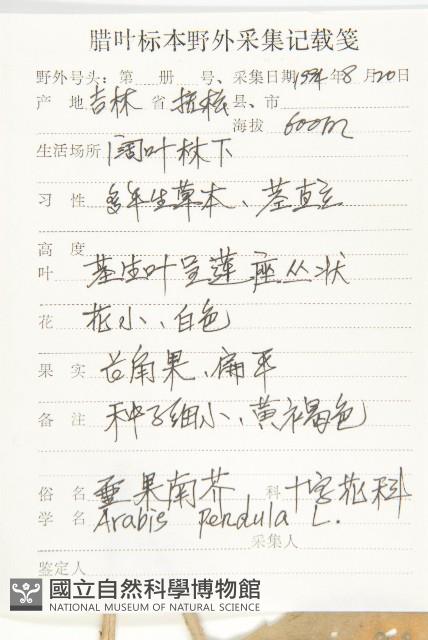 腊叶标本野外采集记载笺
野外号头：第 册 号、采集日期1994年8月20日
产 地 吉林 省 抚松 县、市
海拔 600m
生活场所 阔叶林下
习 性 多年生草本、茎直立
高 度
叶 基生叶呈莲座丛状
花 花小、白色
果 实 长角果、扁平
备 注 种子细小、黄褐色
俗 名 垂果南芥 科 十字花科
学 名 Arabis Pendula L.
采集人
鉴定人
國立自然科學博物館
NATIONAL MUSEUM OF NATURAL SCIENCE